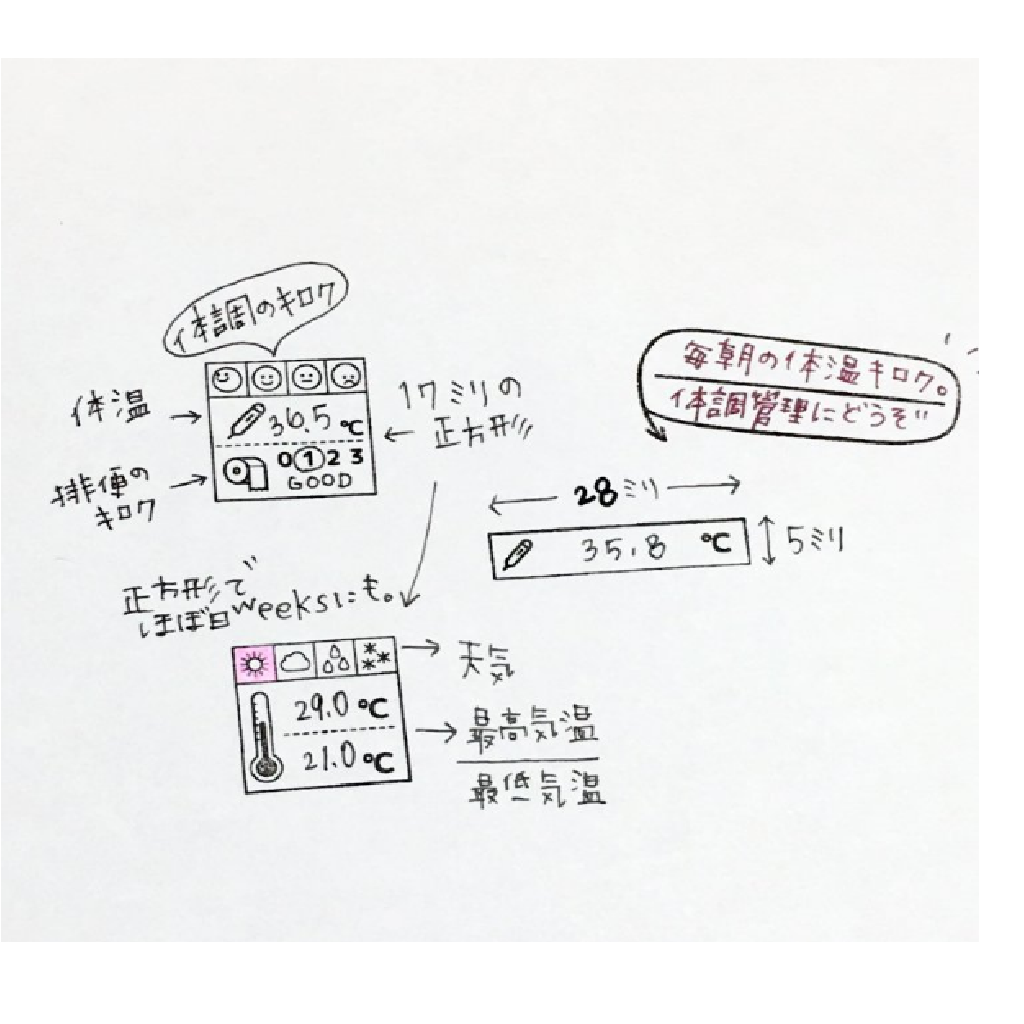 体調のキロク
体温
36.5 ℃
0 1 2 3
GOOD
排便の
キロク
17ミリの
正方形
毎朝の体温キロク。
体調管理にどうぞ
28ミリ
35.8 ℃
5ミリ
正方形で
ほぼ日weeksにも。
天気
29.0 ℃
21.0 ℃
最高気温
最低気温